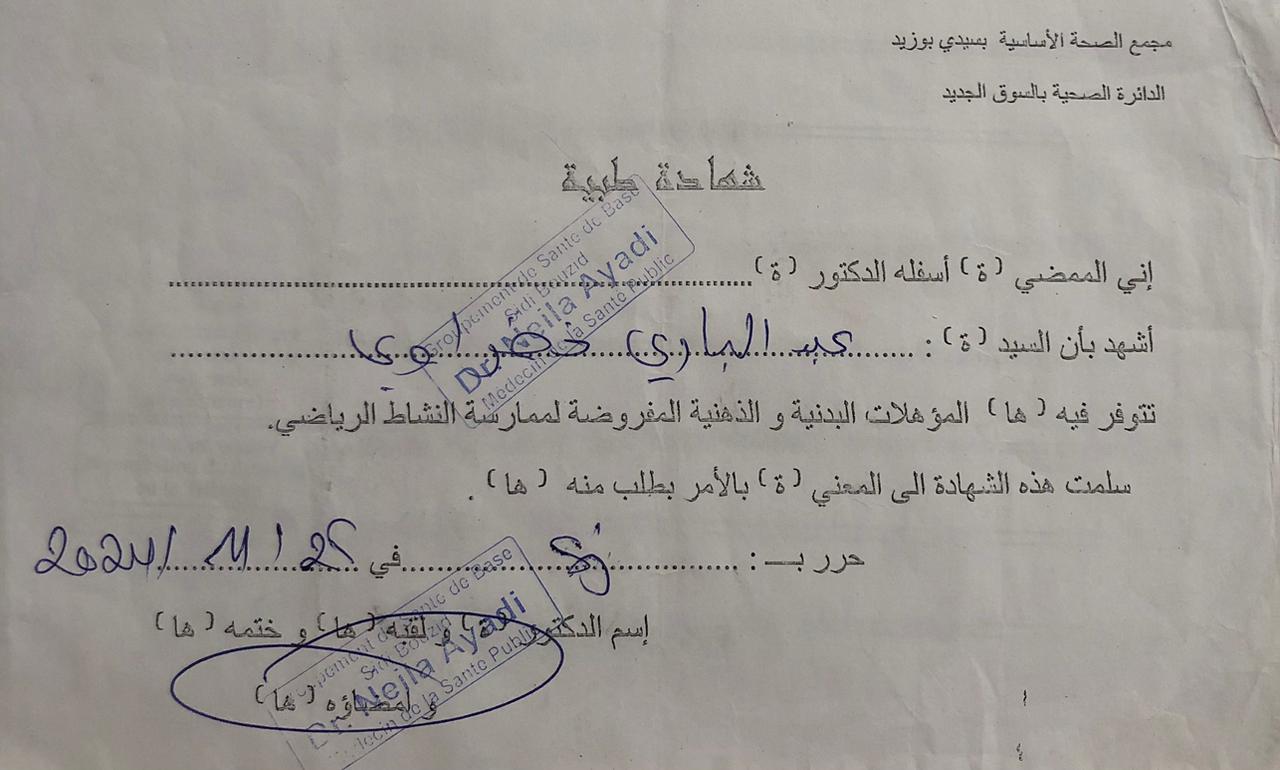 مجمع الصحة الأساسية بسيدي بوزيد
الدائرة الصحية بالسوق الجديد
شهادة طبية
إني الممضي (ة) أسفله الدكتور (ة) ........................
Groupement de Sante de Base
Sidi Bouzid
Dr. Nejla Ayadi
Médecin de la Santé Public
أشهد بأن السيد (ة) : عبد الباري خضراوي
تتوفر فيه (ها) المؤهلات البدنية و الذهنية المفروضة لممارسة النشاط الرياضي.
سلمت هذه الشهادة الى المعني (ة) بالأمر بطلب منه (ها) .
حرر بـ : ............ في 25 / 11 / 2024
إسم الدكتور (ة) و لقبه (ها) و ختمه (ها)
و إمضاؤه (ها)
Groupement de Sante de Base
Sidi Bouzid
Dr. Nejla Ayadi
Médecin de la Santé Public